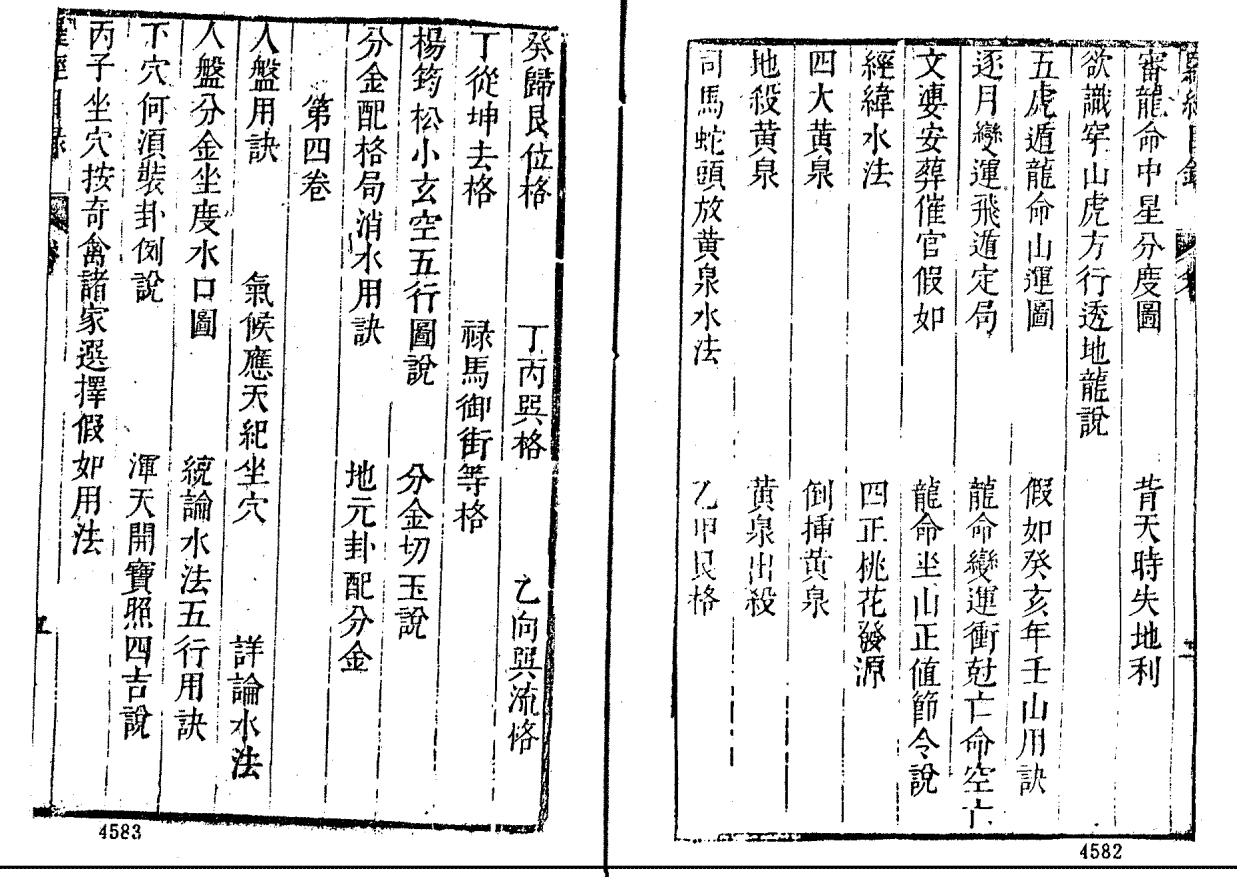 審龍命中星分度圖　背天時失地利
欲識穿山虎方行透地龍說
五虎遁龍命山運圖　假如癸亥年壬山用訣
逐月變運飛遁定局　龍命變運衝尅亡命空亡
文㜢安葬催官假如　龍命坐山正值節令說
經緯水法　四正桃花發源
四大黃泉　倒揷黃泉
地殺黃泉　黃泉出殺
司馬蛇頭放黃泉水法　乙甲艮格
4582
癸歸艮位格　丁丙巽格　乙向巽流格
丁從坤去格　祿馬御街等格
楊筠松小玄空五行圖說　分金切玉說
分金配格局消水用訣　地元卦配分金
第四卷
人盤用訣　氣候應天紀坐穴　詳論水法
人盤分金坐度水口圖　統論水法五行用訣
下穴何湏裝卦例說　渾天開寶照四吉說
丙子坐穴按奇禽諸家選擇假如用法
4583